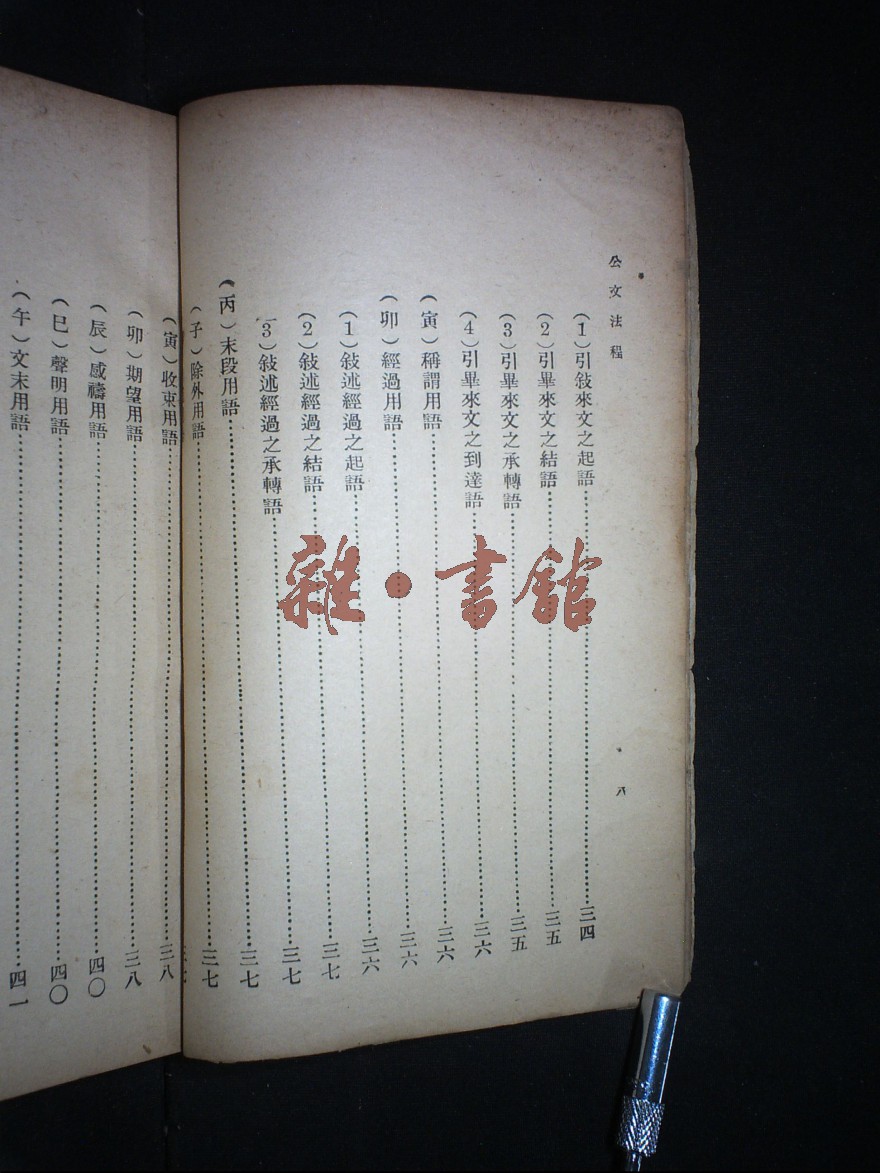 公文法程 八
(1)引敍來文之起語……三四
(2)引畢來文之結語……三五
(3)引畢來文之承轉語……三五
(4)引畢來文之到達語……三六
(寅)稱謂用語……三六
(卯)經過用語……三六
(1)敍述經過之起語……三六
(2)敍述經過之結語……三七
(3)敍述經過之承轉語……三七
(丙)末段用語……三七
(子)除外用語……三七
(寅)收束用語……三八
(卯)期望用語……三八
(辰)感禱用語……四〇
(巳)聲明用語……四〇
(午)文末用語……四一
雜·書館